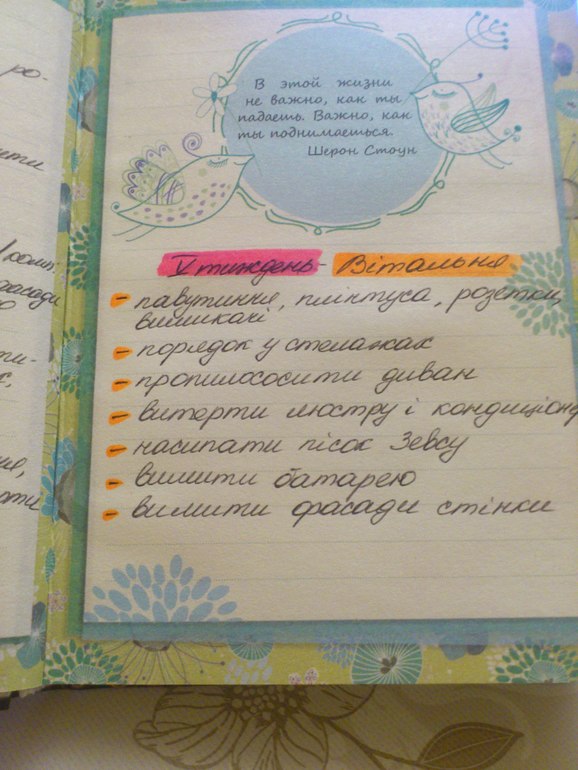 ро-
В этой жизни
не важно, как ты
падаешь. Важно, как
ты поднимаешься.
Шерон Стоун
V тиждень - Вітальня
- павутиння, плінтуса, розетки,
вимикачі
- порядок у стелажах
- пропилососити диван
- витерти люстру і кондиціон
- насипати пісок Зевсу
- вимити батарею
- вимити фасади стінки